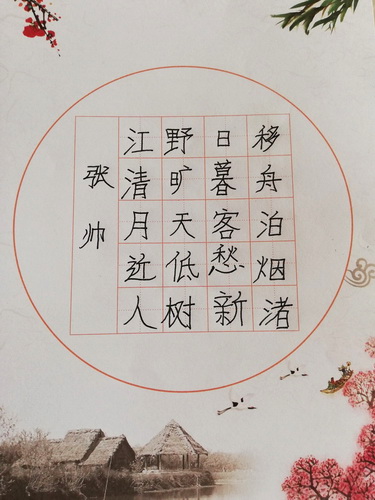 移舟泊烟渚
日暮客愁新
野旷天低树
江清月近人
张帅